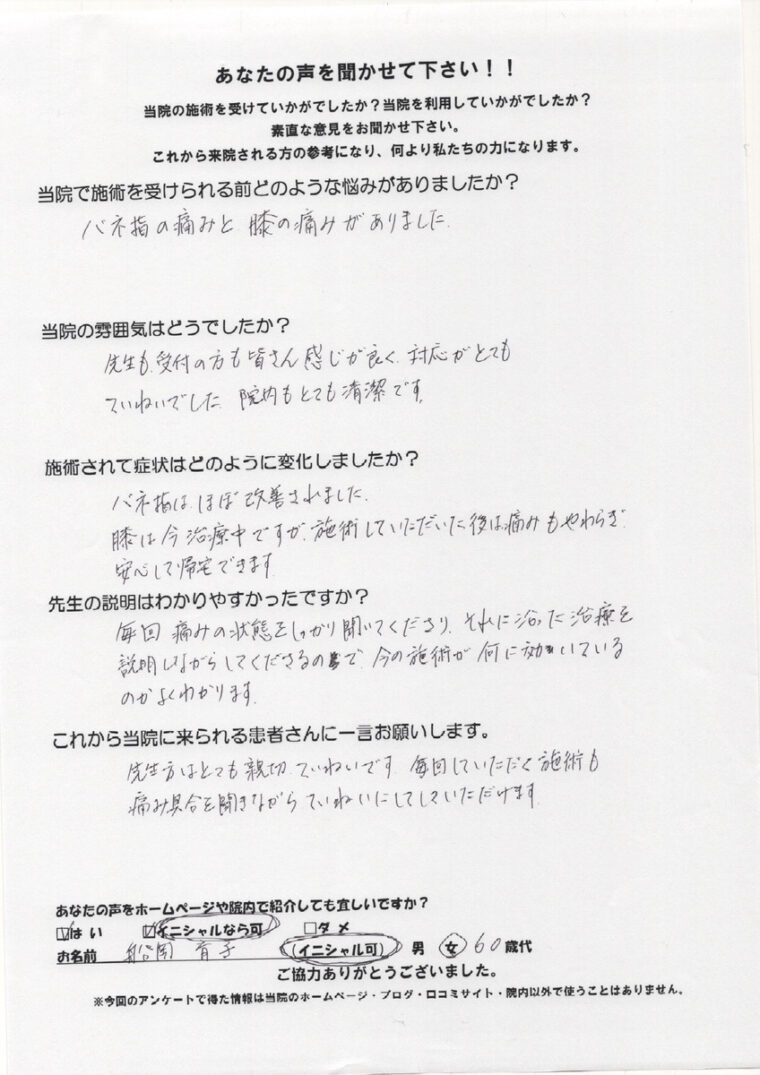 あなたの声を聞かせて下さい！！
当院の施術を受けていかがでしたか？当院を利用していかがでしたか？
素直な意見をお聞かせ下さい。
これから来院される方の参考になり、何より私たちの力になります。
当院で施術を受けられる前どのような悩みがありましたか？
バネ指の痛みと膝の痛みがありました.
当院の雰囲気はどうでしたか？
先生も、受付の方も皆さん感じが良く、対応がとても
ていねいでした、院内もとても清潔です。
施術されて症状はどのように変化しましたか？
バネ指は、ほぼ改善されました.
膝は今治療中ですが、施術していただいた後は、痛みもやわらぎ、
安心して帰宅できます.
先生の説明はわかりやすかったですか？
毎回痛みの状態をしっかり聞いてくださり、それに沿った治療を
説明しながらしてくださるので、今の施術が何に効いている
のかよくわかります.
これから当院に来られる患者さんに一言お願いします。
先生方はとても親切、ていねいです、毎回していただく施術も
痛み具合を聞きながらていねいにしてしていただけます.
あなたの声をホームページや院内で紹介しても宜しいですか？
☑はい ☑イニシャルなら可 □ダメ
お名前 船岡 育子 (イニシャル可) 男 女 60歳代
ご協力ありがとうございました。
※今回のアンケートで得た情報は当院のホームページ・ブログ・口コミサイト・院内以外で使うことはありません。